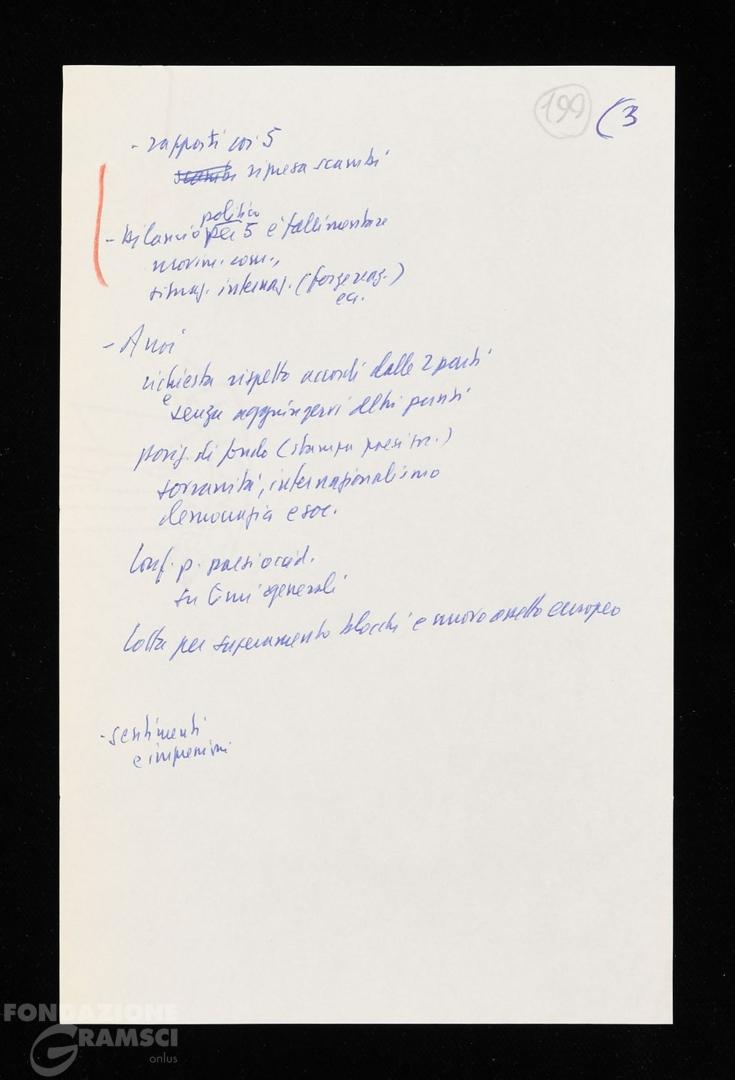 199 (3
- rapporti coi 5
scambi ripresa scambi
politico
- bilancio per 5 è fallimentare
movim. com.,
situaz. internaz. (forze reaz.)
ecc.
- A noi
richiesta rispetto accordi dalle 2 parti
e senza aggiungervi altri punti
posiz. di fondo (stampa)
sovranità, internazionalismo
democrazia e soc.
Conf. p. paesi occid.
su temi generali
Lotta per superamento blocchi e nuovo assetto europeo
- sentimenti
e impressioni
FONDAZIONE
GRAMSCI
onlus